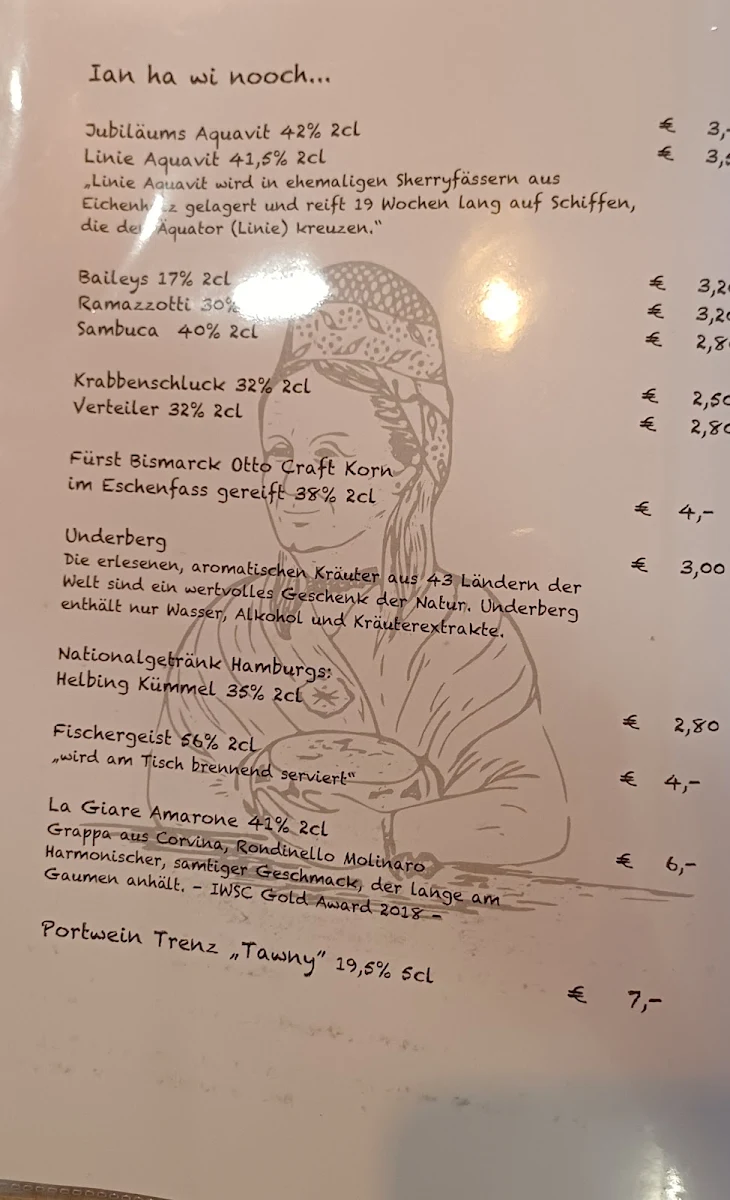 Ian ha wi nooch...
Jubiläums Aquavit 42% 2cl € 3,-
Linie Aquavit 41,5% 2cl € 3,5
„Linie Aquavit wird in ehemaligen Sherryfässern aus
gelagert und reift 19 Wochen lang auf Schiffen,
die Äquator (Linie) kreuzen.“
Baileys 17% 2cl € 3,20
Ramazzotti 30% € 3,20
Sambuca 40% 2cl € 2,8
Krabbenschluck 32% 2cl € 2,50
Verteiler 32% 2cl € 2,80
Fürst Bismarck Otto Craft Korn
im Eschenfass gereift 38% 2cl € 4,-
Underberg € 3,00
Die erlesenen, aromatischen Kräuter aus 43 Ländern der
Welt sind ein wertvolles Geschenk der Natur. Underberg
enthält nur Wasser, Alkohol und Kräuterextrakte.
Nationalgetränk Hamburgs:
Helbing Kümmel 35% 2cl € 2,80
Fischergeist 56% 2cl € 4,-
„wird am Tisch brennend serviert“
La Giare Amarone 41% 2cl € 6,-
Grappa aus Corvina, Rondinello Molinaro
Harmonischer, samtiger Geschmack, der lange am
Gaumen anhält. - IWSC Gold Award 2018 -
Portwein Trenz „Tawny“ 19,5% 5cl € 7,-